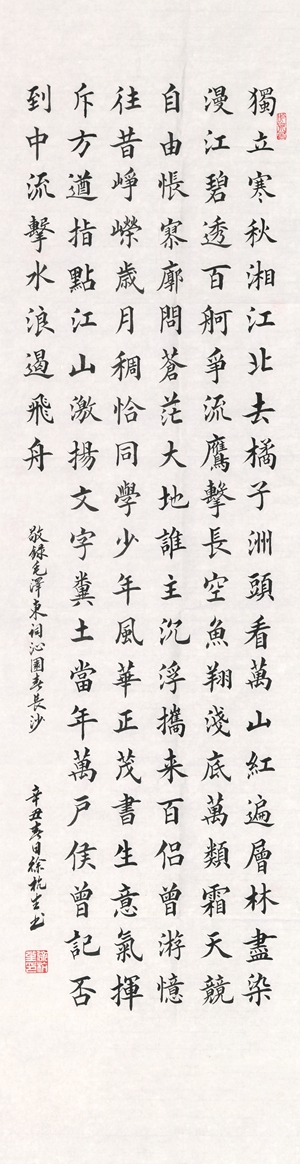 獨立寒秋湘江北去橘子洲頭看萬山紅遍層林盡染
漫江碧透百舸爭流鷹擊長空魚翔淺底萬類霜天競
自由悵寥廓問蒼茫大地誰主沉浮攜来百侣曾游憶
往昔崢嶸歲月稠恰同學少年風華正茂書生意氣揮
斥方遒指點江山激揚文字糞土當年萬户侯曾記否
到中流擊水浪遏飛舟
敬録毛澤東詞沁園春長沙
辛丑春日徐杭生书